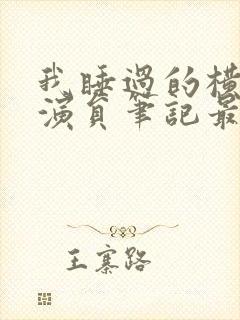 我睡過的橫
演員筆記最
王寨路